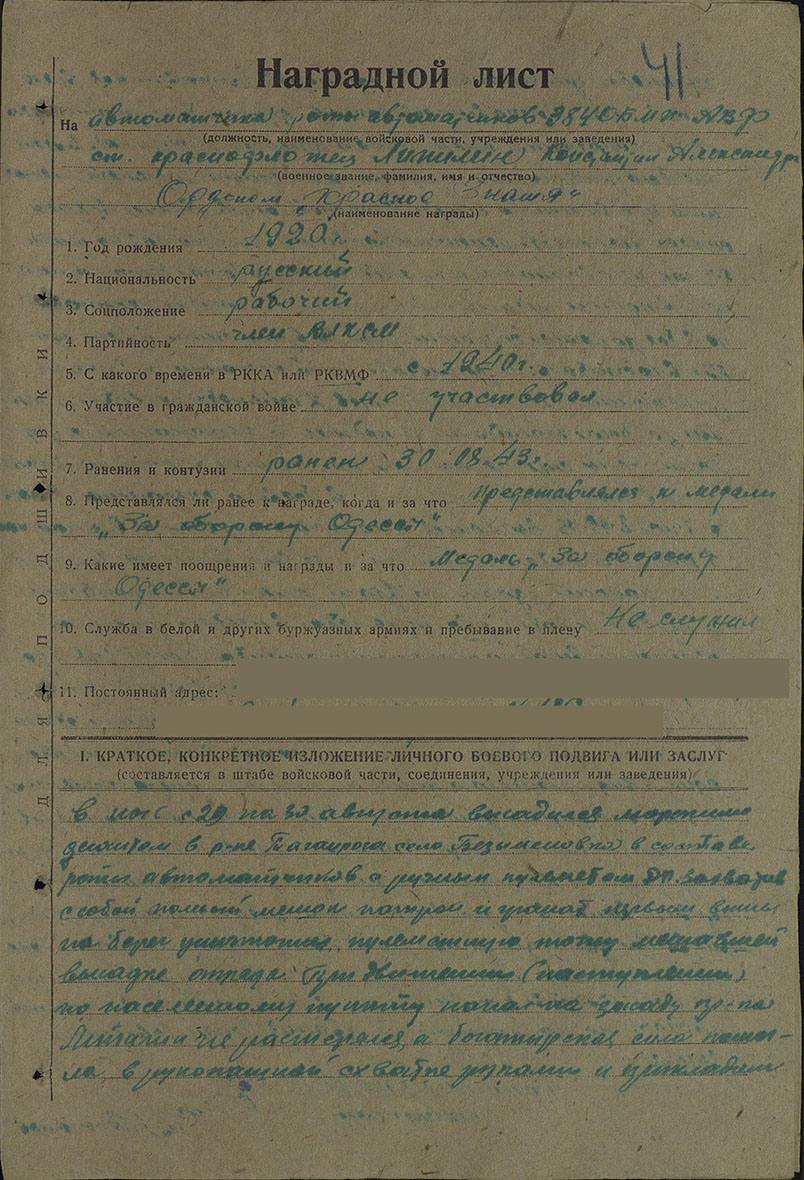 41
Наградной лист
На автоматчика роты автоматчиков 384 ОБМП АВФ
(должность, наименование войсковой части, учреждения или заведения)
ст. краснофлотец Александр
(военное звание, фамилия, имя и отчество)
Орденом "Красное Знамя"
(наименование награды)
1. Год рождения 1920 г.
2. Национальность русский
3. Соцположение рабочий
4. Партийность член ВЛКСМ
5. С какого времени в РККА или РКВМФ с 1940 г.
6. Участие в гражданской войне не участвовал
7. Ранения и контузии ранен 30.08.43 г.
8. Представлялся ли ранее к награде, когда и за что Представлялся к медали
"За оборону Одессы"
9. Какие имеет поощрения и награды и за что Медаль "За оборону
Одессы"
10. Служба в белой и других буржуазных армиях и пребывание в плену Не служил
11. Постоянный адрес:
I. КРАТКОЕ, КОНКРЕТНОЕ ИЗЛОЖЕНИЕ ЛИЧНОГО БОЕВОГО ПОДВИГА ИЛИ ЗАСЛУГ
(составляется в штабе войсковой части, соединения, учреждения или заведения)
В ночь с 29 на 30 августа высадился морским
десантом в р-не Таганрога село Безыменовка в составе
роты автоматчиков с ручным пулеметом ДП. Захватив
с собой полный мешок патрон и гранат первым вышел
на берег уничтожив пулеметную точку мешавшей
высадке отряда. При движении (наступлении)
по населенному пункту на засаду пр-ка
не растерялся, а богатырская сила помог-
ла в рукопашной схватке руками и прикладом
ДЛЯ ПОДШИВКИ